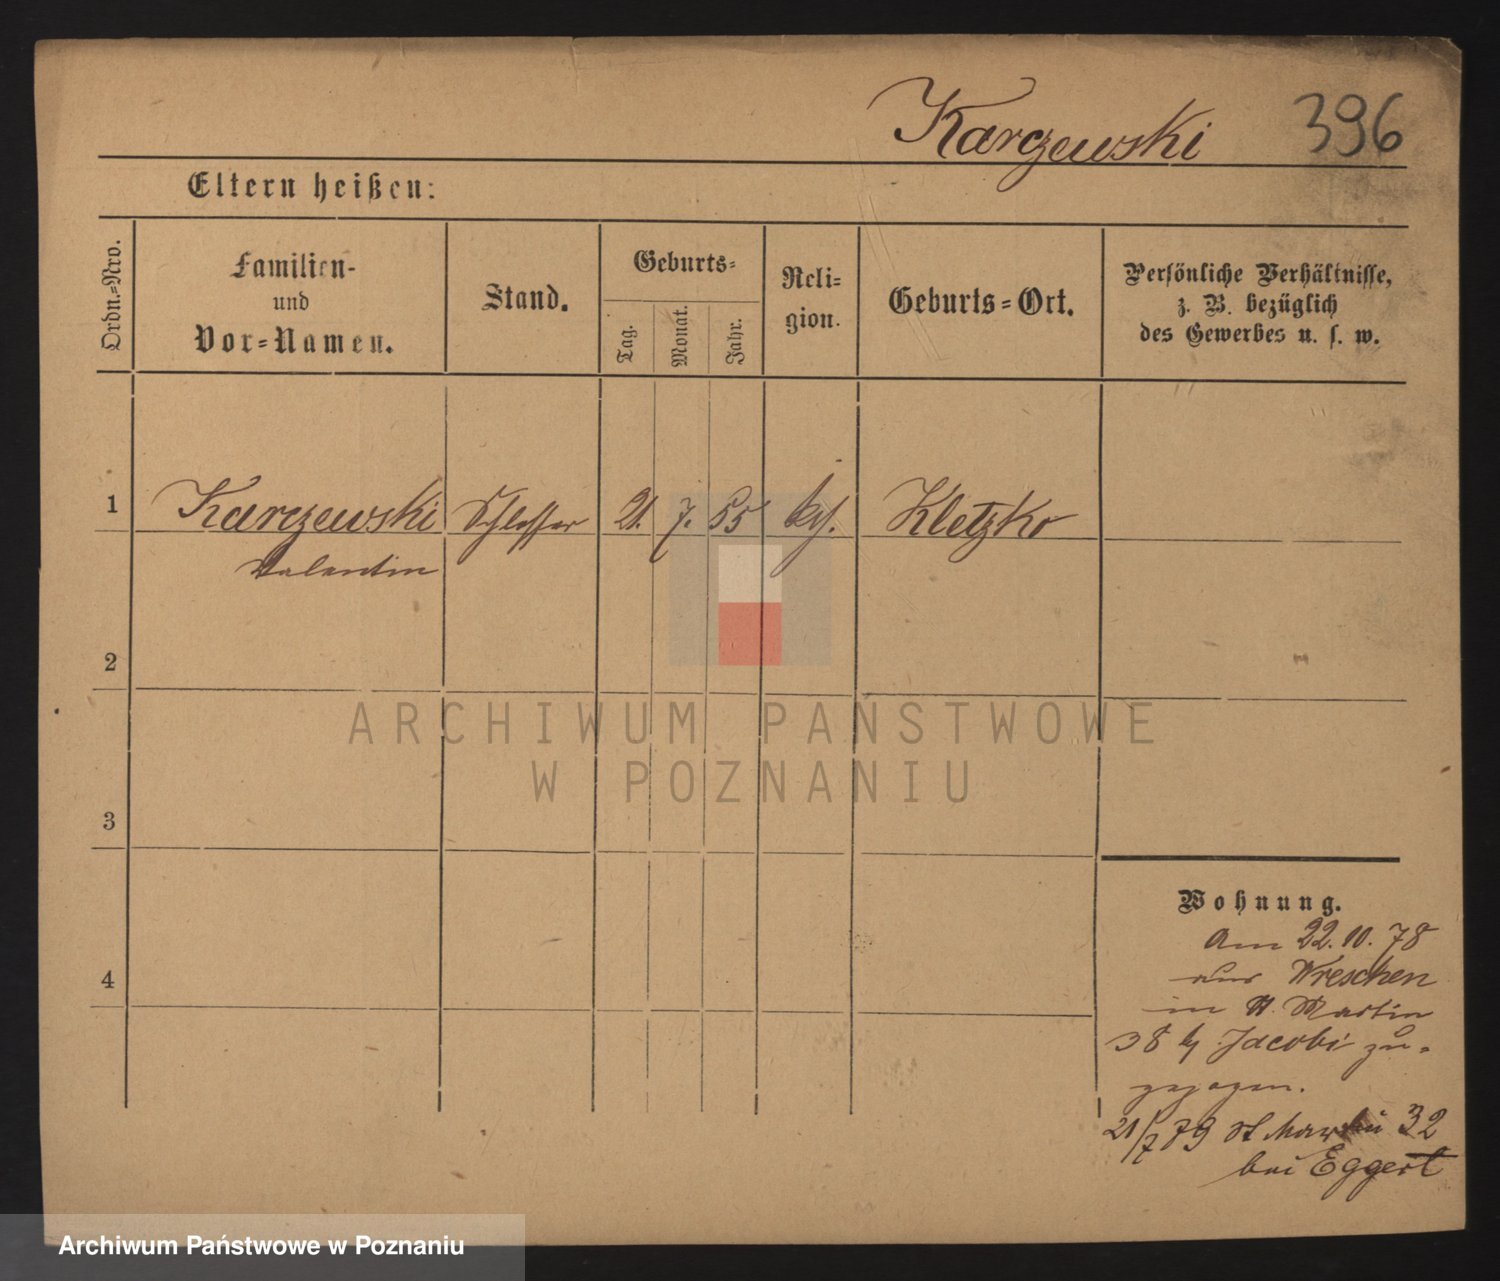 Karczewski 396
Eltern heißen:
Ordn.-Nro.
Familien-
und
Vor-Namen.
Stand.
Geburts-
Tag.
Monat.
Jahr.
Reli-
gion.
Geburts-Ort.
Persönliche Verhältnisse,
z. B. bezüglich
des Gewerbes u. s. w.
1 Karczewski Schlosser 21. 7. 55 Kletzko
Valentin
2
3
4
Wohnung.
Am 22. 10. 78
aus Wreschen
in St. Martin
38 b/ Jacobi zu-
gezogen.
21/7 79 St Martin 32
bei Eggert
ARCHIWUM PAŃSTWOWE
W POZNANIU
Archiwum Państwowe w Poznaniu